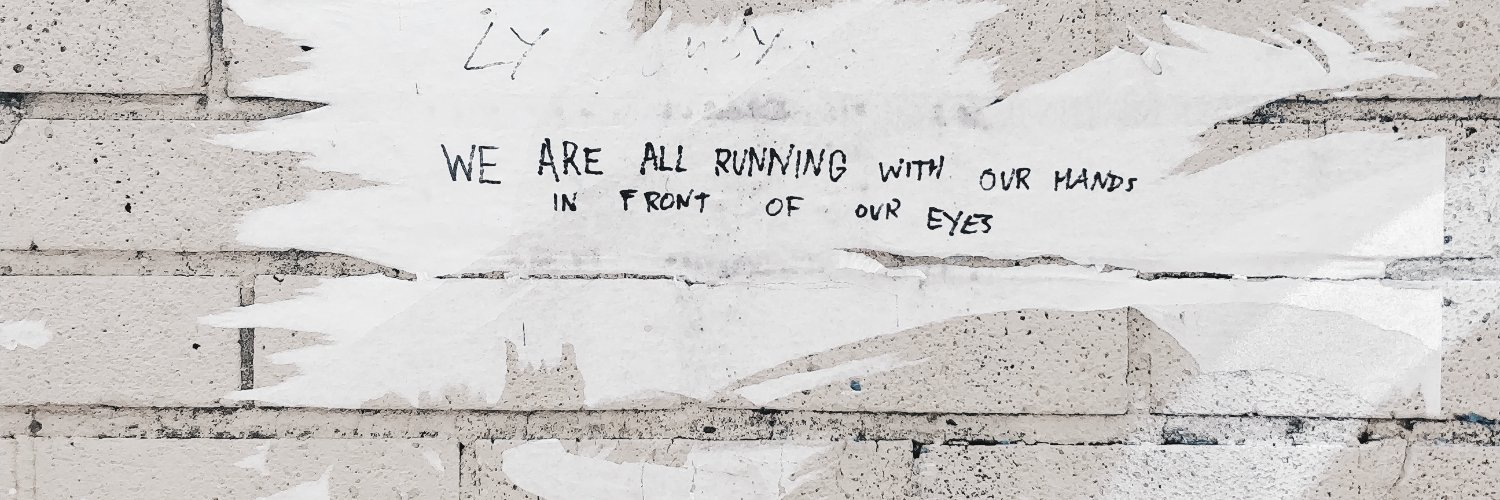 WE ARE ALL RUNNING WITH OUR HANDS
IN FRONT OF OUR EYES